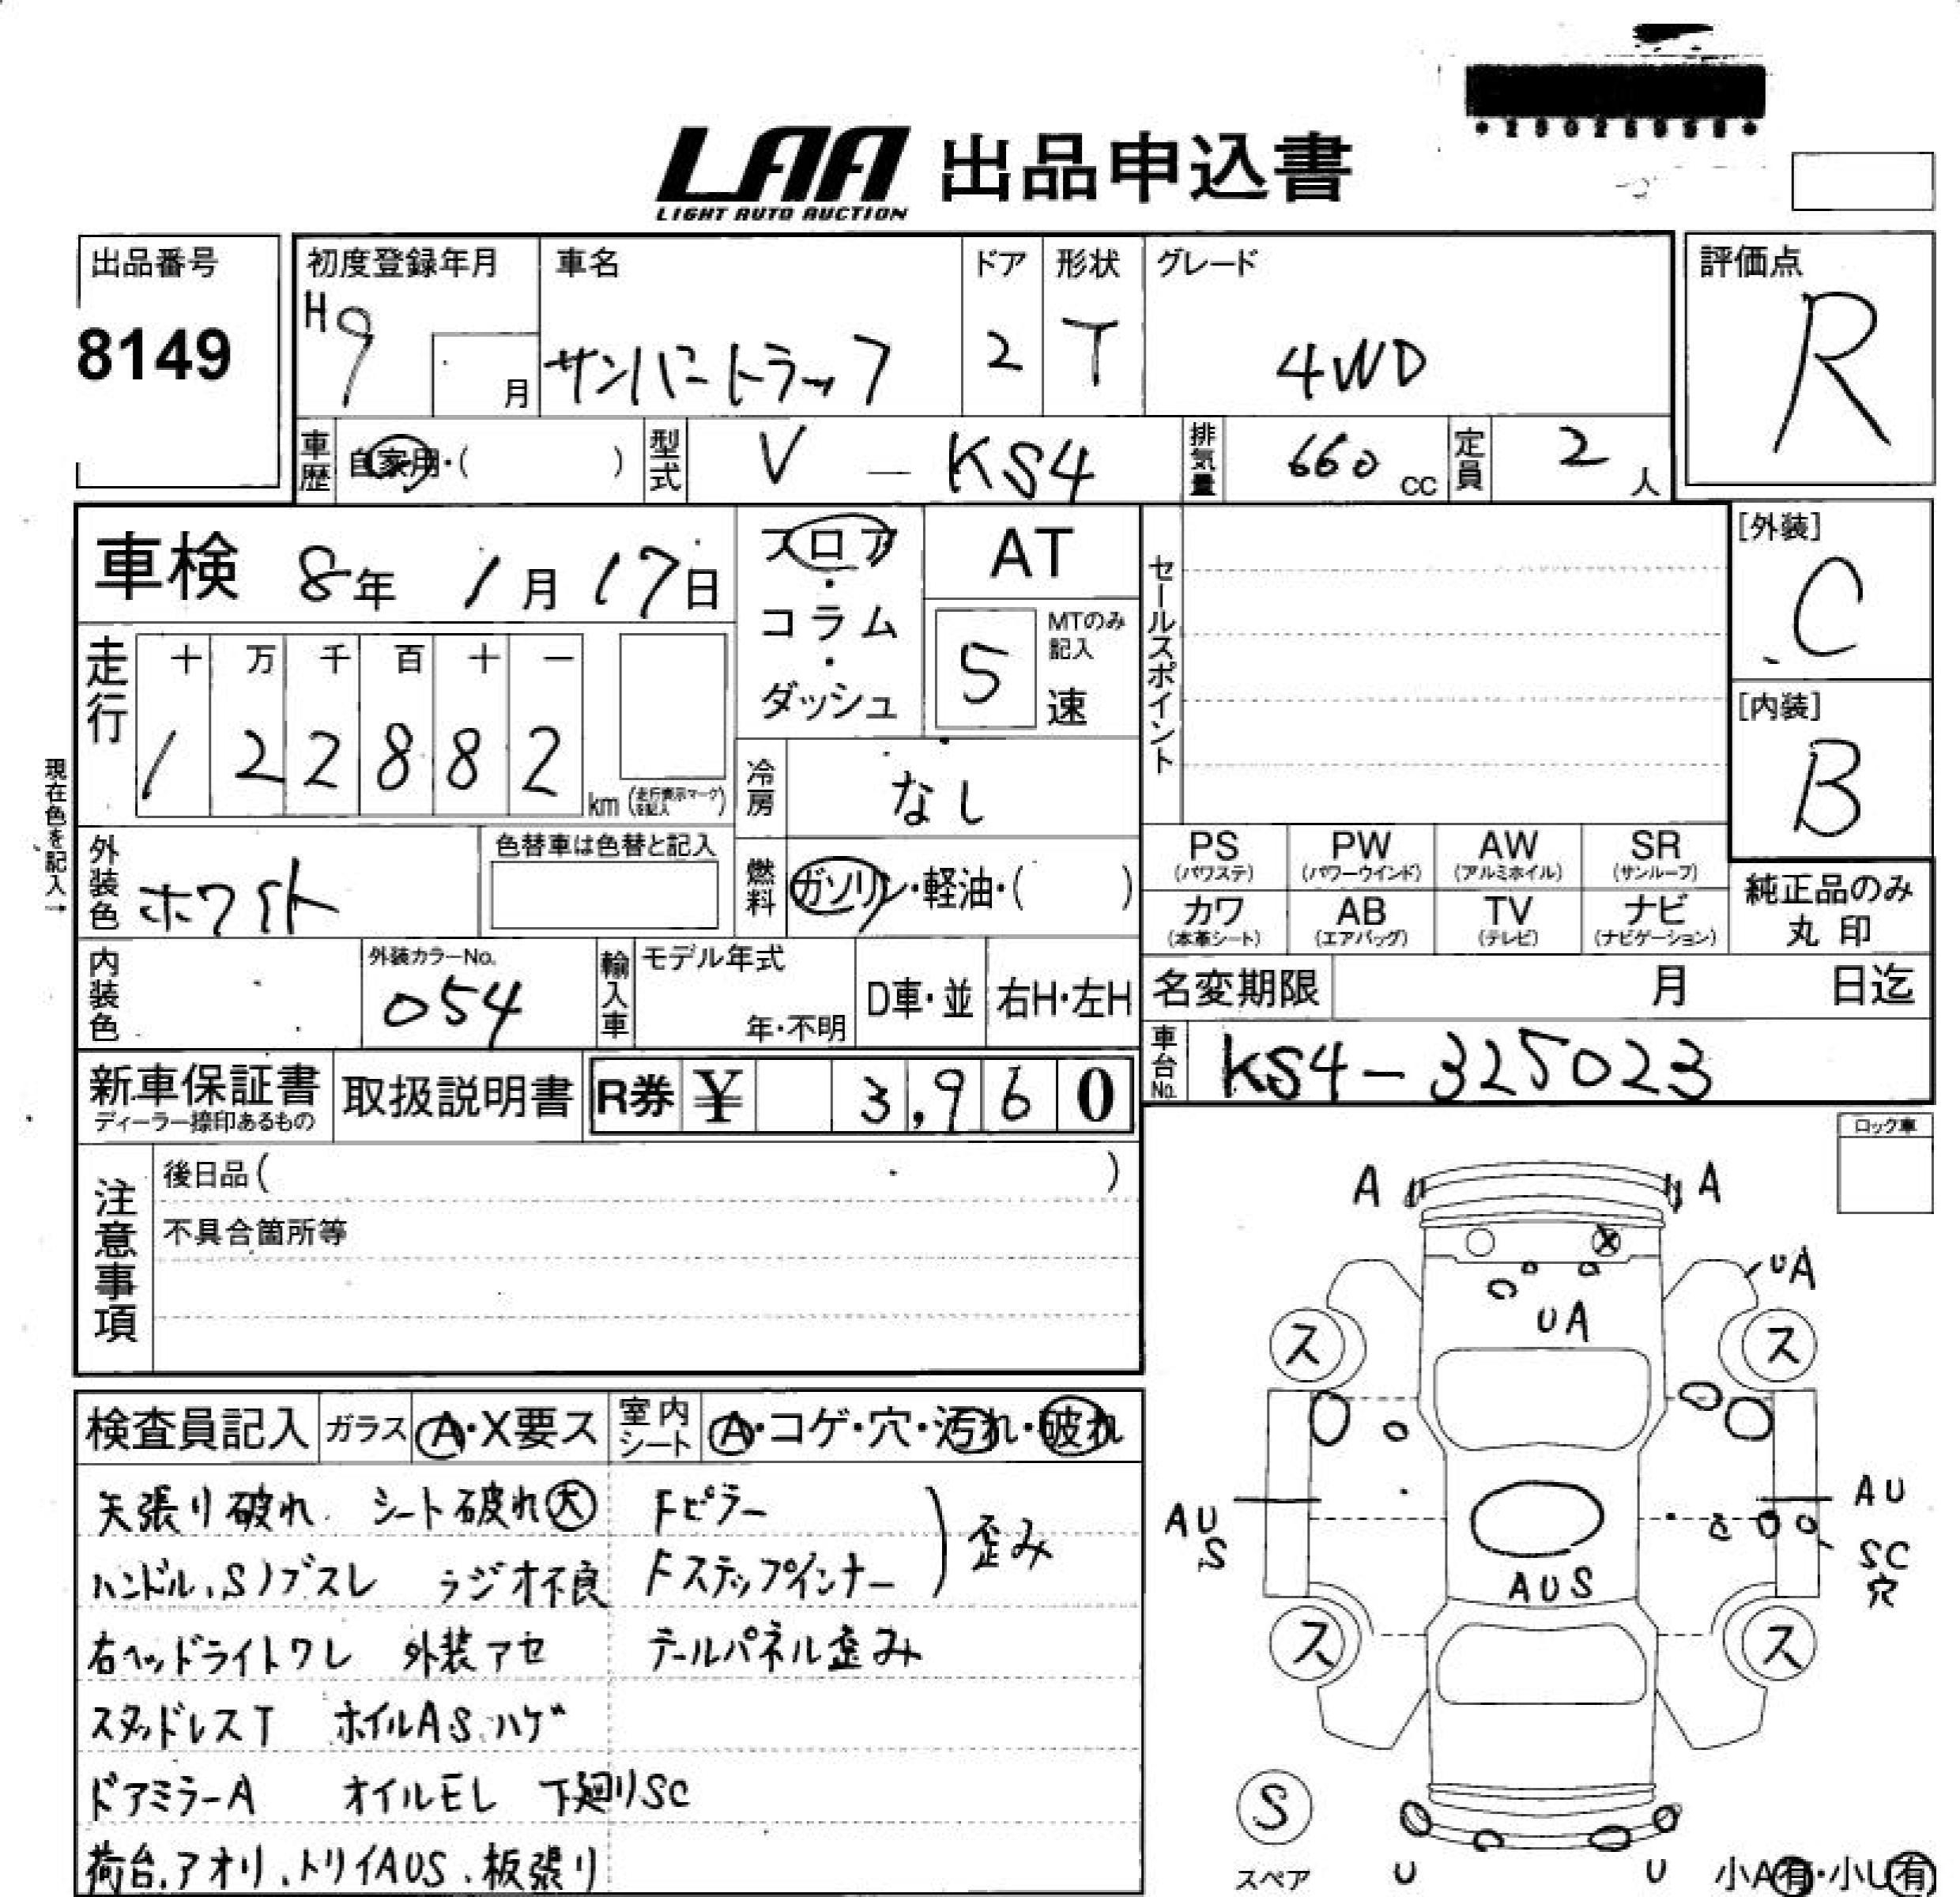 LAA 出品申込書
LIGHT AUTO AUCTION
出品番号
8149
初度登録年月
H9
月
車名
サンバートラック
ドア
2
形状
T
グレード
4WD
評価点
R
車歴 自家用・( )
型式 V - KS4
排気量 660 cc
定員 2 人
車検 8年 1月 17日
フロア・コラム・ダッシュ
AT
5
MTのみ記入
速
セールスポイント
[外装]
C
[内装]
B
走行
十 万 千 百 十 一
1 2 2 8 8 2
km (走行表示マークを記入)
現在色を記入→
冷房 なし
外装色 ホワイト
色替車は色替と記入
燃料 ガソリン・軽油・( )
PS (パワステ)
PW (パワーウインド)
AW (アルミホイル)
SR (サンルーフ)
カワ (本革シート)
AB (エアバッグ)
TV (テレビ)
ナビ (ナビゲーション)
純正品のみ
丸印
内装色
外装カラーNo.
054
輸入車
モデル年式
年・不明
D車・並
右H・左H
名変期限 月 日迄
車台No. KS4-325023
新車保証書
ディーラー捺印あるもの
取扱説明書
R券 ¥ 3,960
注意事項
後日品( )
不具合箇所等
ロック車
検査員記入 ガラス A・X要ス 室内シート A・コゲ・穴・汚れ・破れ
天張り破れ シート破れ大 Fピラー
ハンドル、Sノブスレ ラジオ不良 Fステップインナー
歪み
右ヘッドライトワレ 外装アセ テールパネル歪み
スタッドレスT ホイルAS、ハゲ
ドアミラーA オイルEL 下廻りSC
荷台、アオリ、トリイAUS、板張り
A A
UA
UA
ス ス
AU
S
AU
SC
穴
AUS
ス ス
S
スペア
U U
小A有・小U有